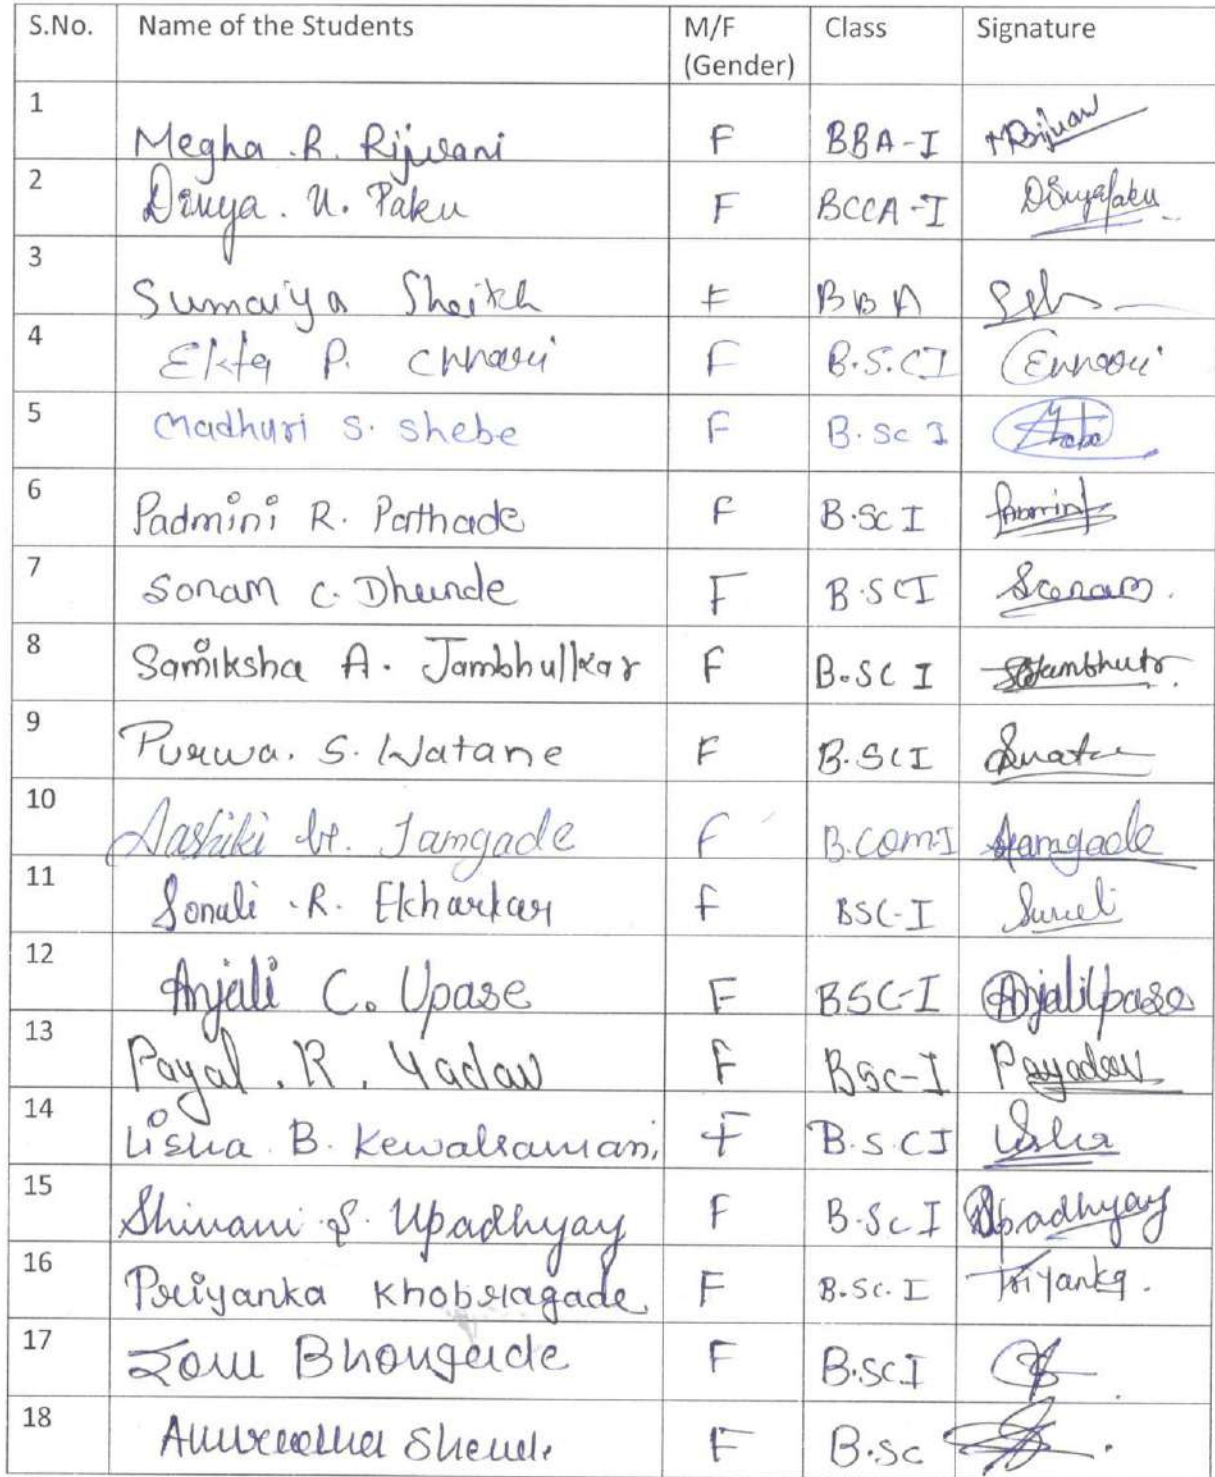 S.No. Name of the Students M/F (Gender) Class Signature
1 Megha .R. Rijwani F BBA-I
2 Divya. U. Paku F BCCA-I Divyapaku
3 Sumaiya Shaikh F BBA
4 Ekta P. Chhavi F B.S.C I
5 Madhuri S. Shebe F B.Sc I
6 Padmini R. Parthade F B.Sc I
7 Sonam C. Dhunde F B.SC I Sonam.
8 Samiksha A. Jambhulkar F B.SC I
9 Purwa. S. Watane F B.SC I
10 Aashiki Jamgade F B.COM-I Jamgade
11 Sonali .R. Ekharkar F BSC-I
12 Anjali C. Upase F BSC-I AnjaliUpase
13 Payal . R . Yadav F BSC-I PaYadav
14 Lisha B. Kewalramani F B.S.C I Lisha
15 Shivani S. Upadhyay F B.Sc I Upadhyay
16 Priyanka Khobragade F B.Sc. I Priyanka.
17 Bhongade F B.Sc. I
18 Anuradha Shende F B.Sc